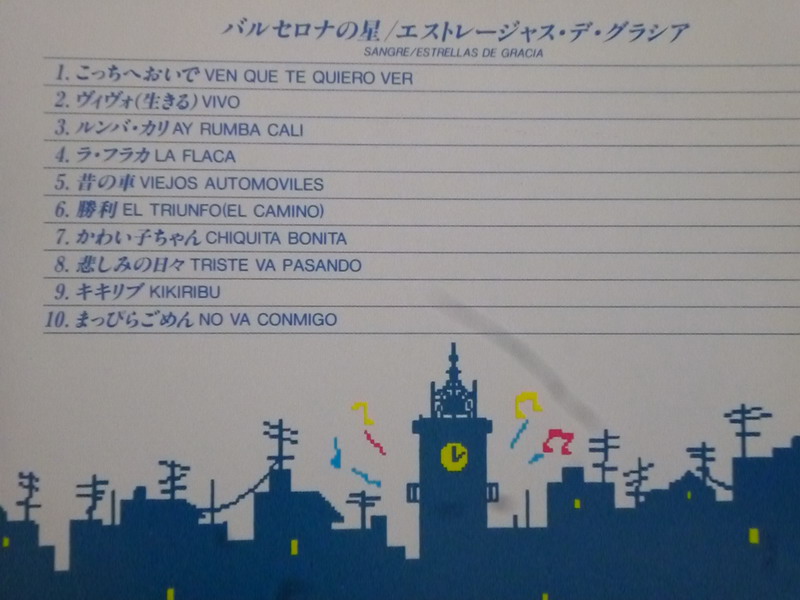 バルセロナの星/エストレージャス・デ・グラシア
SANGRE/ESTRELLAS DE GRACIA
1. こっちへおいで VEN QUE TE QUIERO VER
2. ヴィヴォ(生きる) VIVO
3. ルンバ・カリ AY RUMBA CALI
4. ラ・フラカ LA FLACA
5. 昔の車 VIEJOS AUTOMOVILES
6. 勝利 EL TRIUNFO(EL CAMINO)
7. かわい子ちゃん CHIQUITA BONITA
8. 悲しみの日々 TRISTE VA PASANDO
9. キキリブ KIKIRIBU
10. まっぴらごめん NO VA CONMIGO